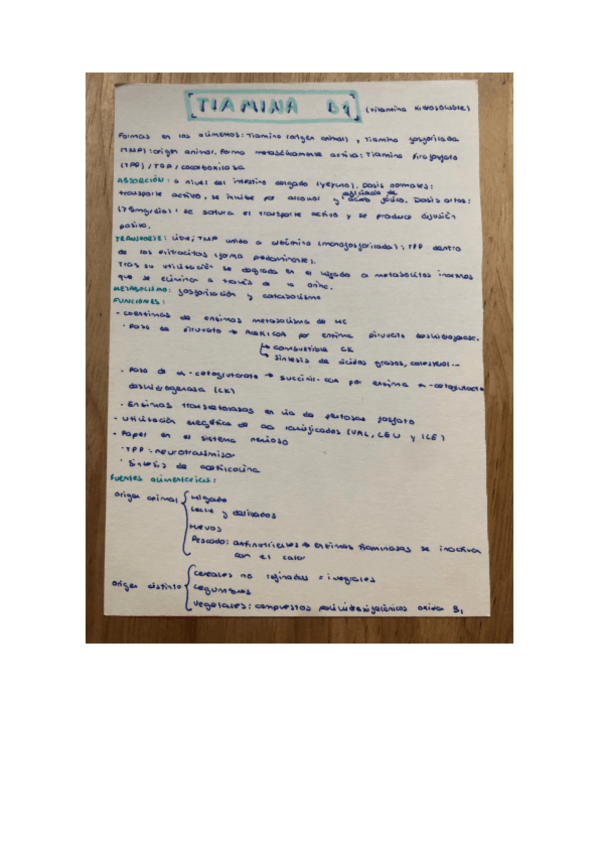 TIAMINA B1 (vitamina hidrosoluble)
Formas en los alimentos: Tiamina (origen animal) y Tiamina fosforilada
(TMP): origen animal. Forma metabólicamente activa: Tiamina Pirofosfato
(TPP) / TDP / cocarboxilasa
ABSORCIÓN: a nivel del intestino delgado (yeyuno). Dosis normales:
transporte activo, se inhibe por alcohol y deficiencia de ácido fólico. Dosis altas:
(>5mg/día): se satura el transporte activo y se produce difusión
pasiva.
TRANSPORTE: Libre; TMP unido a albúmina (monofosforilada); TPP dentro
de los eritrocitos (forma predominante).
Tras su utilización se degrada en el hígado a metabolitos inocuos
que se eliminan a través de la orina.
METABOLISMO: fosforilación y catabolismo
FUNCIONES:
- coenzimas de enzimas metabolismo de HC
· Paso de piruvato → AcetilCoA por enzima piruvato deshidrogenasa.
↳ combustible CK
↳ síntesis de ácidos grasos, colesterol...
· Paso de α-cetoglutarato → succinil-coA por enzima α-cetoglutarato
deshidrogenasa (CK)
· Enzimas transcetolasas en vía de pentosas fosfato
- Utilización energética de aa ramificados (VAL, LEU y ILE)
- Papel en el sistema nervioso
· TPP: neurotransmisor
· Síntesis de acetilcolina
Fuentes alimentarias:
origen animal { Hígado
Leche y derivados
Huevos
Pescado: antinutrientes → enzimas tiaminasas se inactiva
con el calor
origen distinto { cereales no refinados = integrales
Legumbres
Vegetales: compuestos polihidroxifenólicos oxidan B1